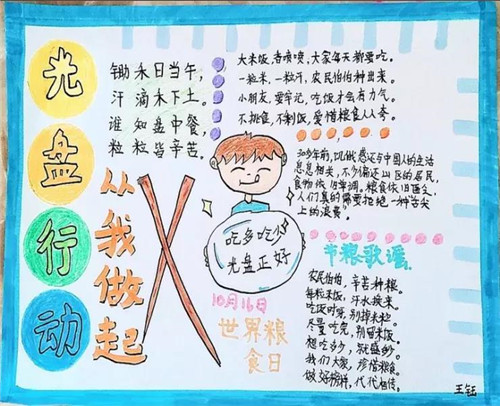 光盘行动
从我做起
锄禾日当午，
汗滴木下土。
谁知盘中餐，
粒粒皆辛苦。
大米饭，香喷喷，大家每天都要吃。
一粒米，一粒汗，农民伯伯种出来。
小朋友，要牢记，吃饭才会有力气。
不挑食，不剩饭，爱惜粮食人人夸。
30多年前，饥饿感还与中国人的生活
息息相关，不少偏远山区的居民，
食物依旧单调。粮食依旧匮乏，
人们真的需要拒绝一种舌尖
上的浪费。
吃多吃少
光盘正好
10月16日
世界粮
食日
节粮歌谣
农民伯伯，辛苦种粮。
每粒米饭，汗水换来。
吃饭时完，别掉米粒。
尽量吃完，别留米饭。
想吃多少，就盛多少。
我们大家，珍惜粮食。
做好榜样，代代相传。
王钰